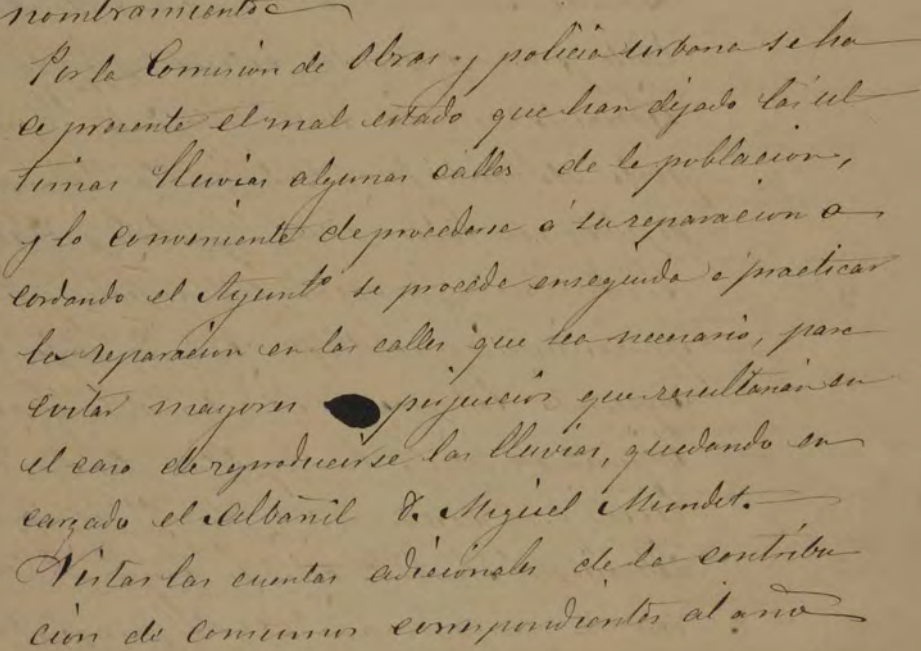 nombramiento
Por la Comision de Obras y policia urbana se ha
ce presente el mal estado que han dejado las ul
timas lluvias algunas calles de la poblacion,
y lo conveniente de procederse á su reparacion a
cordando el Ayuntº se proceda enseguida a practicar
la reparacion en las calles que sea necesario, para
evitar mayores perjuicios que resultarian en
el caso de reproducirse las lluvias, quedando en
cargado el Albañil D. Miguel Mundet.
Vistas las cuentas adicionales de la contribu
cion de consumos correspondientes al año